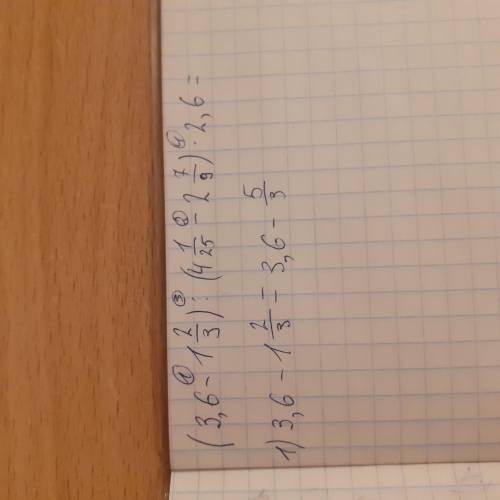 (3,6 - 1 2/3) : (4 1/25 - 2 7/9) · 2,6 =
1) 3,6 - 1 2/3 = 3,6 - 5/3